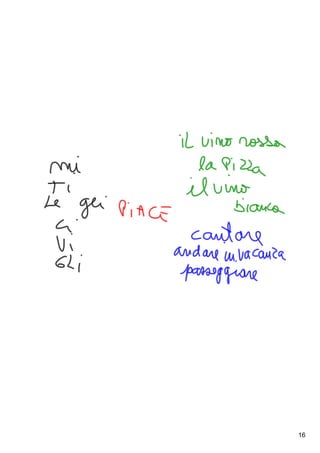 mi
Ti
Le gli
ci
Vi
GLi
PiACE
iL vino rosso
la Pizza
il vino
bianco
cantare
andare in vacanza
passeggiare
16